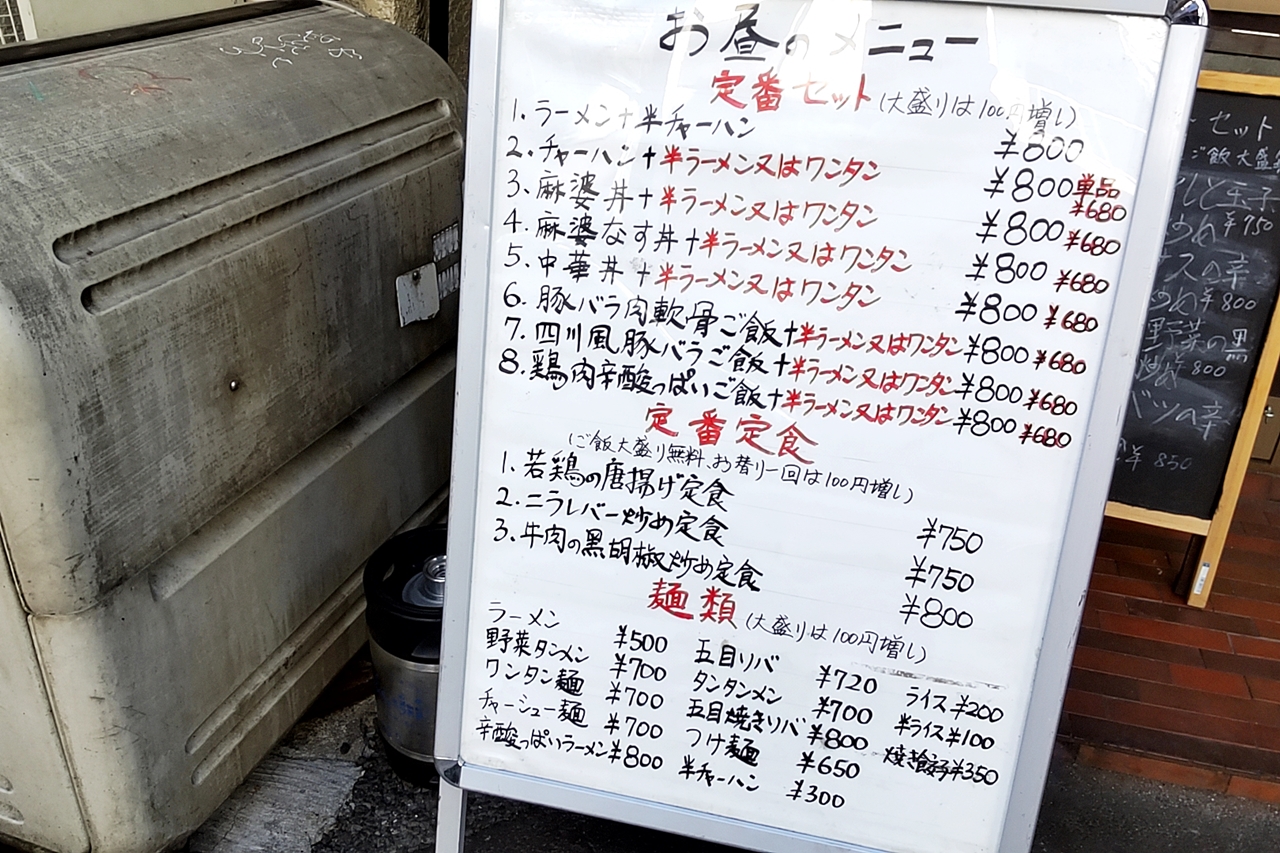 お昼のメニュー
定番セット(大盛りは100円増し)
1. ラーメン+半チャーハン ¥800
2. チャーハン+半ラーメン又はワンタン ¥800 単品¥680
3. 麻婆丼+半ラーメン又はワンタン ¥800 ¥680
4. 麻婆なす丼+半ラーメン又はワンタン ¥800 ¥680
5. 中華丼+半ラーメン又はワンタン ¥800 ¥680
6. 豚バラ肉軟骨ご飯+半ラーメン又はワンタン ¥800 ¥680
7. 四川風豚バラご飯+半ラーメン又はワンタン ¥800 ¥680
8. 鶏肉辛酸っぱいご飯+半ラーメン又はワンタン ¥800 ¥680
定番定食
(ご飯大盛り無料、お替り一回は100円増し)
1. 若鶏の唐揚げ定食 ¥750
2. ニラレバー炒め定食 ¥750
3. 牛肉の黒胡椒炒め定食 ¥800
麺類(大盛りは100円増し)
ラーメン ¥500 五目ソバ ¥720 ライス ¥200
野菜タンメン ¥700 タンタンメン ¥700 半ライス ¥100
ワンタン麺 ¥700 五目焼きソバ ¥800 焼餃子 ¥350
チャーシュー麺 ¥700 つけ麺 ¥650
辛酸っぱいラーメン ¥800 半チャーハン ¥300
セット
ご飯大盛
と玉子
め ¥750
スの辛
め ¥800
野菜の黒
¥800
ツの辛
¥850